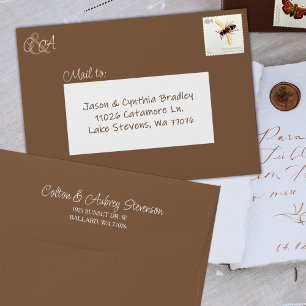 C&A
Mail to:
Jason & Cynthia Bradley
11026 Catamore Ln.
Lake Stevens, Wa 77076
Colton & Aubrey Stevenson
1975 SUNSET DR. W
BALLARD, WA 77076